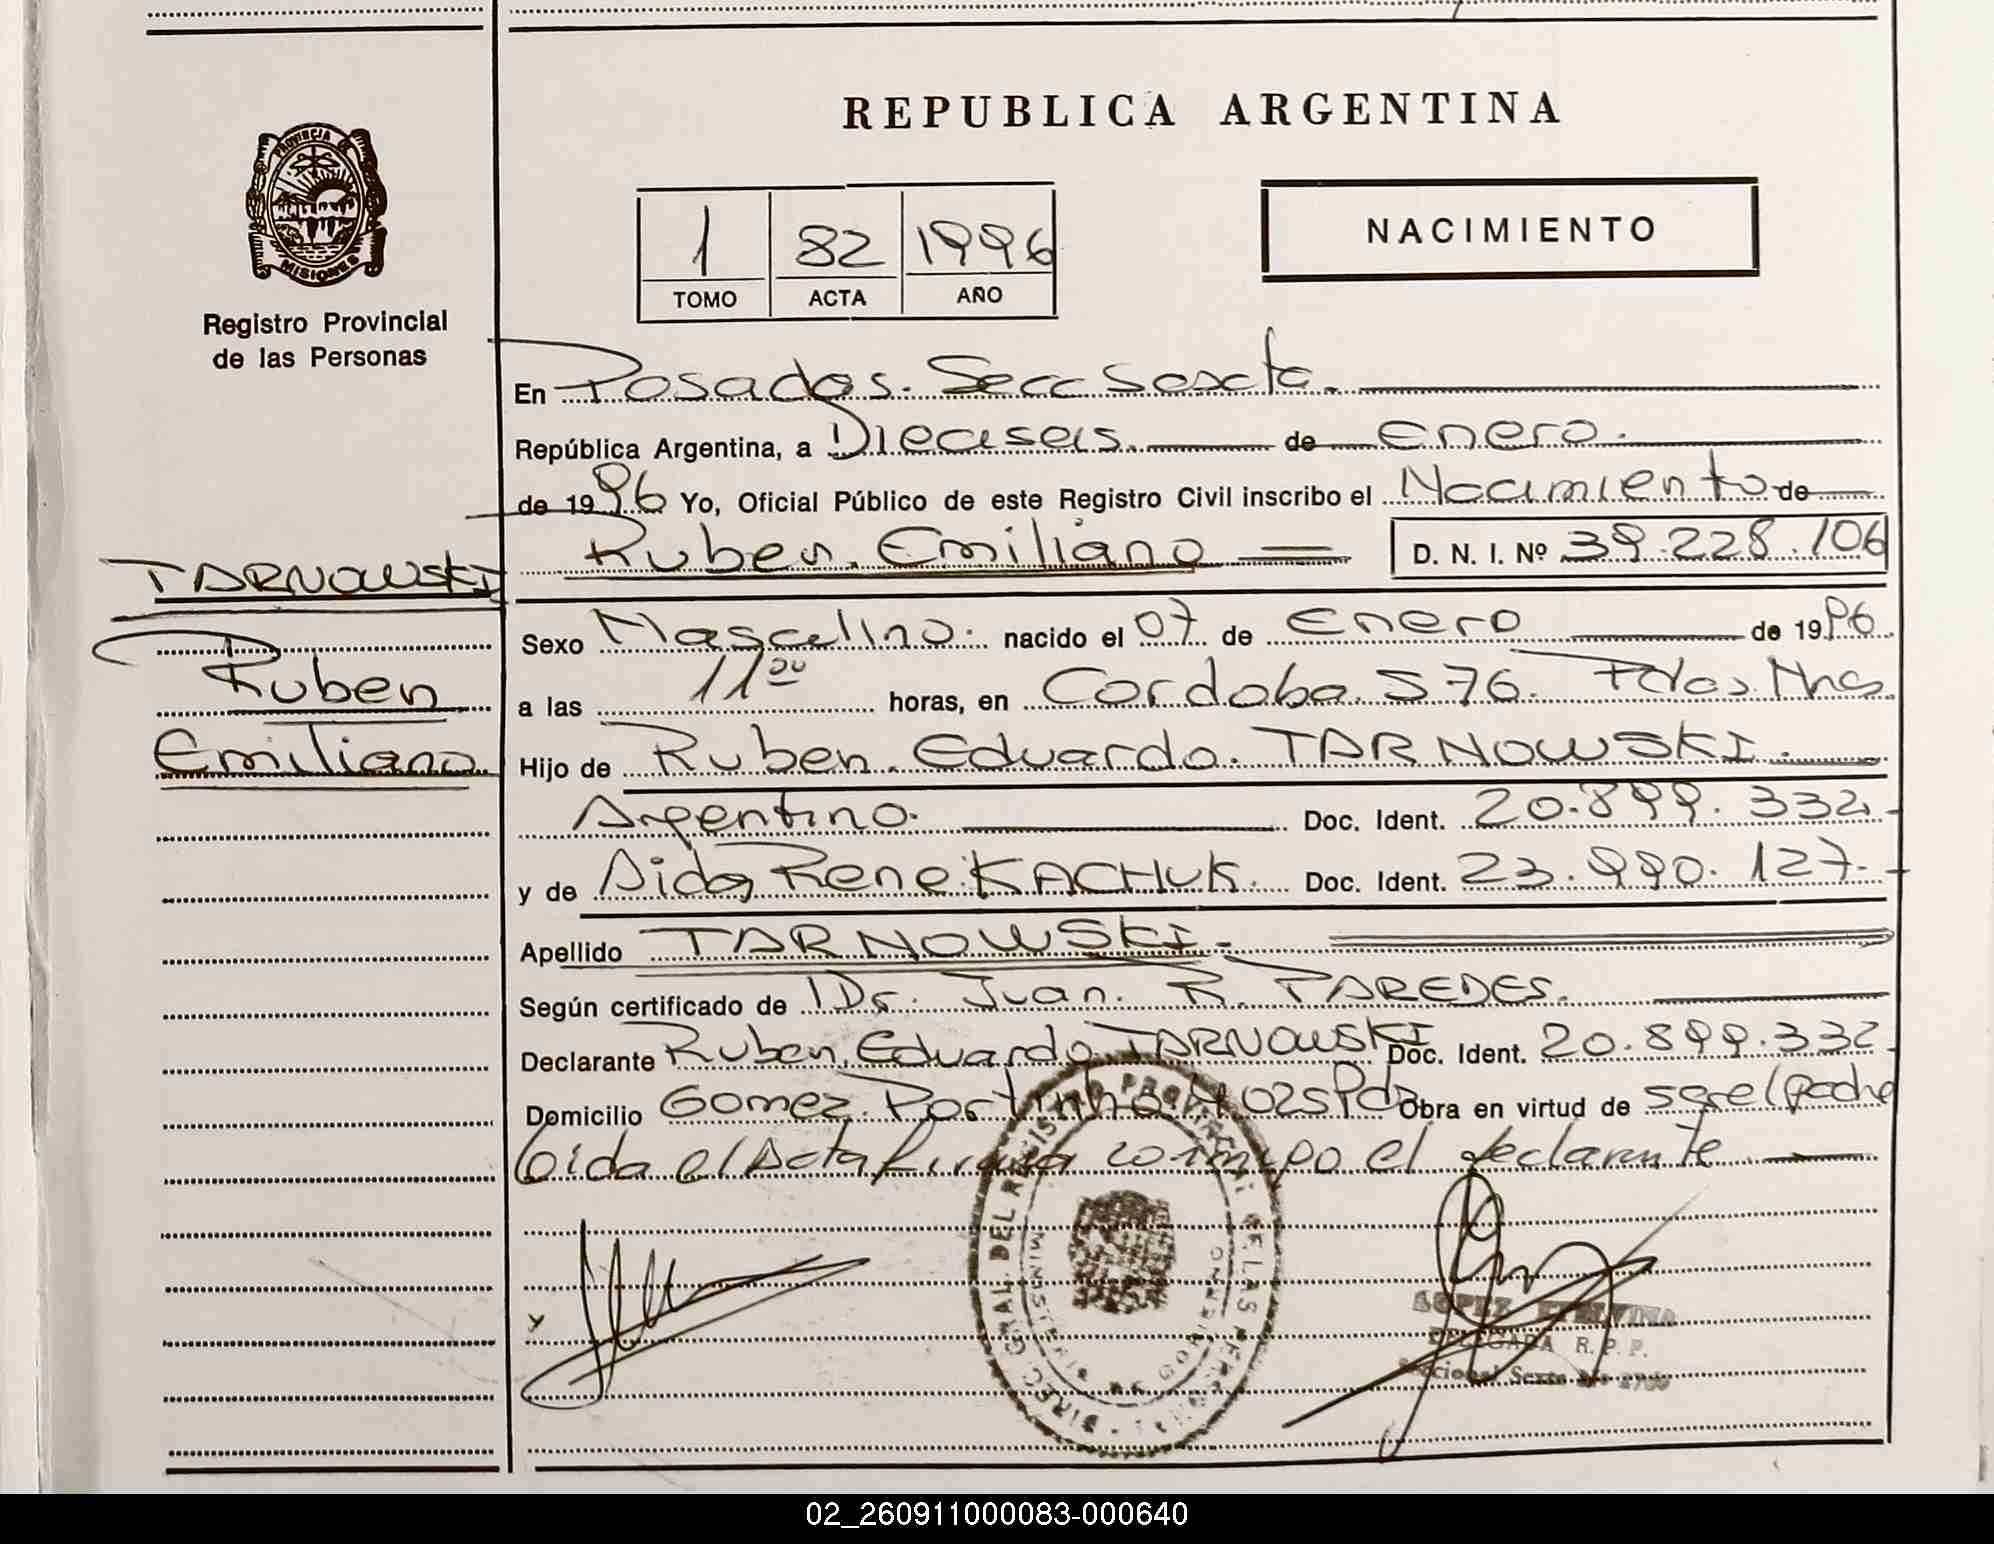 PROVINCIA DE
MISIONES
Registro Provincial
de las Personas
TARNOWSKI
Ruben
Emiliano
REPUBLICA ARGENTINA
1 82 1996
TOMO ACTA AÑO
NACIMIENTO
En Posadas. Secc Sexta.
República Argentina, a Dieciseis. de Enero.
de 1996 Yo, Oficial Público de este Registro Civil inscribo el Nacimiento de
Ruben. Emiliano D. N. I. Nº 39.228.106
Sexo Masculino. nacido el 07 de Enero de 1996
a las 11 00 horas, en Cordoba. 576. Pdas. Mnes
Hijo de Ruben. Eduardo. TARNOWSKI.
Argentino. Doc. Ident. 20.899.332
y de Aida Rene KACHUK. Doc. Ident. 23.990.127.
Apellido TARNOWSKI.
Según certificado de Dr. Juan. R. PAREDES.
Declarante Ruben. Eduardo TARNOWSKI Doc. Ident. 20.899.332
Domicilio Gomez. Portinho 4025 Pdas Obra en virtud de ser el padre
Leida el Acta firma conmigo el declarante
DIREC. GRAL. DEL REGISTRO PROVINCIAL DE LAS PERSONAS
LOPEZ ETELVINA
DELEGADA R. P. P.
Seccional Sexta
02_260911000083-000640